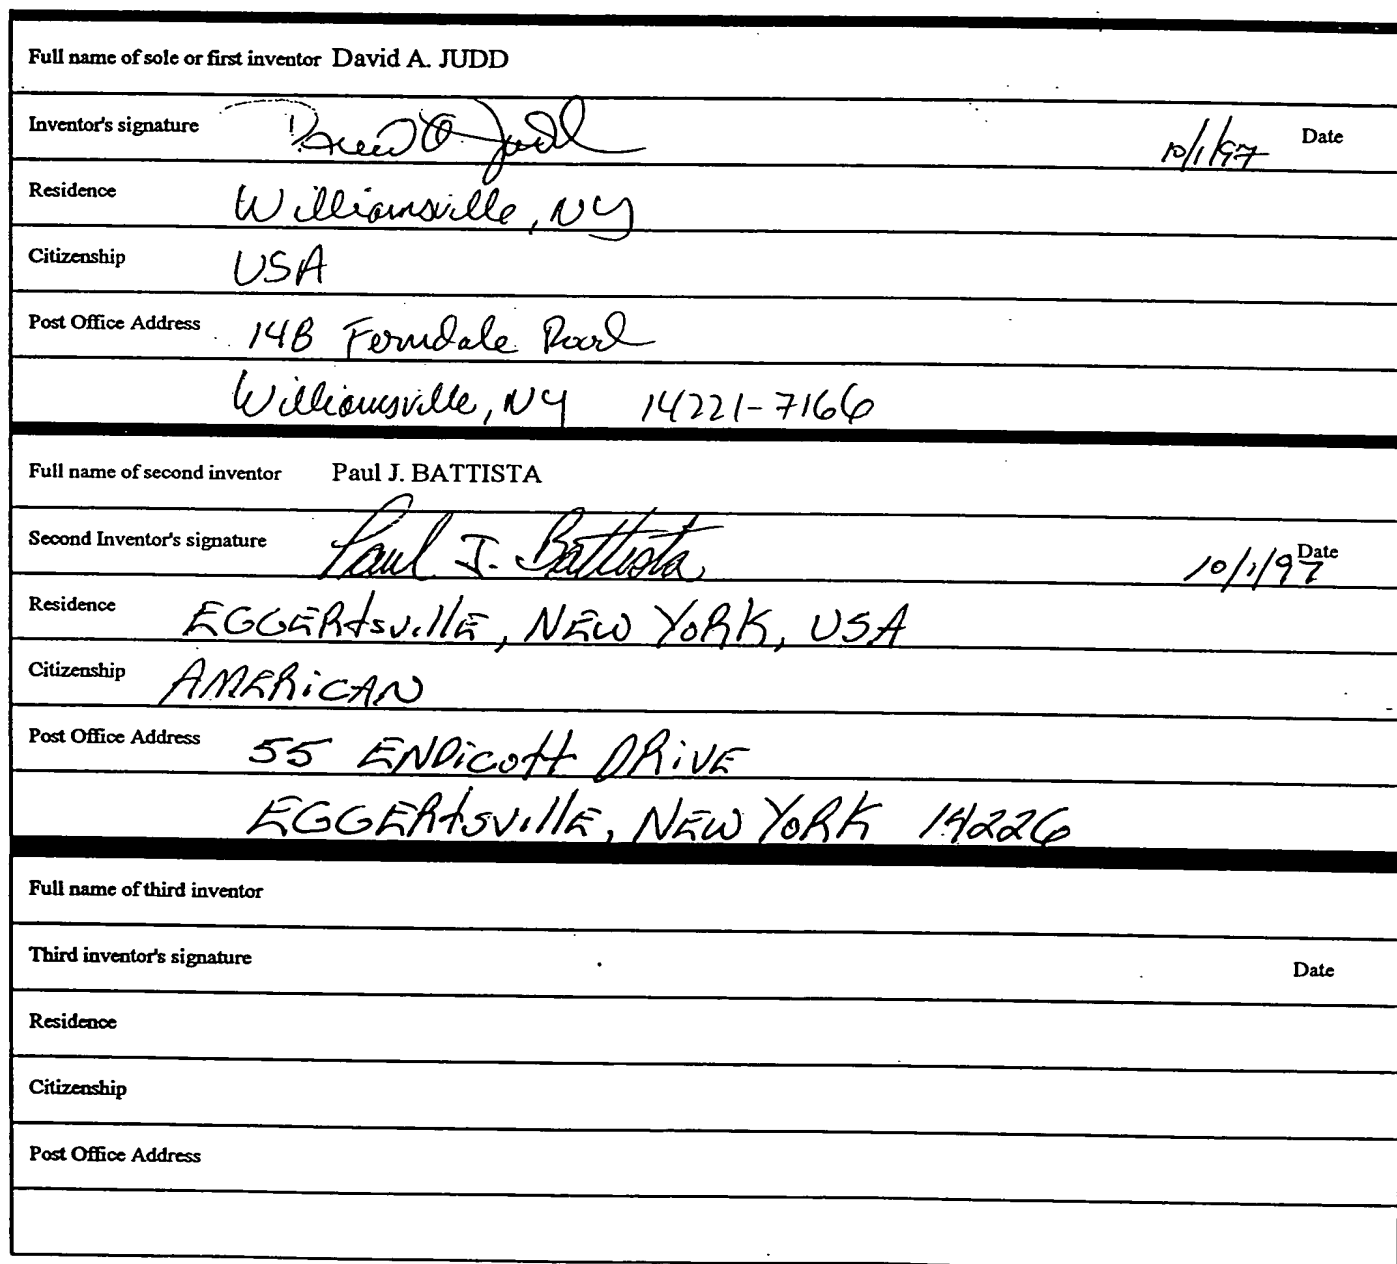 Full name of sole or first inventor David A. JUDD
Inventor's signature David A Judd 10/1/97 Date
Residence Williamsville, NY
Citizenship USA
Post Office Address 14B Ferndale Road
Williamsville, NY 14221-7166
Full name of second inventor Paul J. BATTISTA
Second Inventor's signature Paul J. Battista 10/1/97 Date
Residence EGGERtsvillE, NEW YoRK, USA
Citizenship AMERiCAN
Post Office Address 55 ENDicott DRiVE
EGGERtsvillE, NEW YoRK 14226
Full name of third inventor
Third inventor's signature Date
Residence
Citizenship
Post Office Address